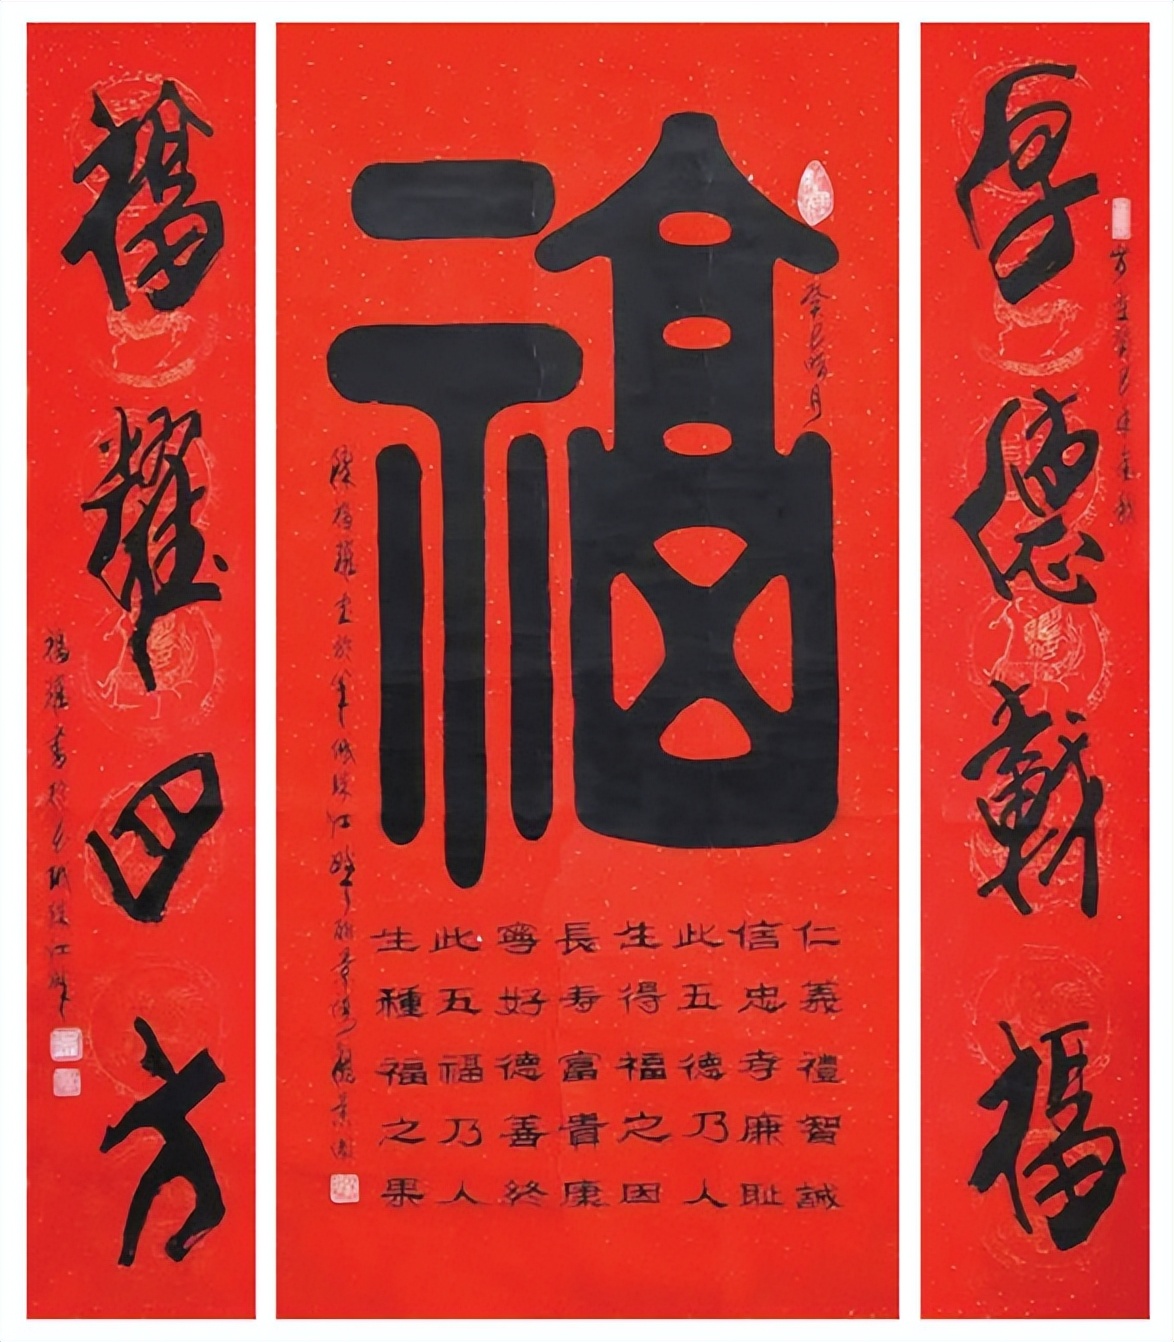 厚德載福
福
仁義禮智誠
信忠孝廉耻
此五德乃人
生得福之因
長寿富貴康
寧好德善終
此五福乃人
生種福之果
福耀四方
福耀書於珠江畔